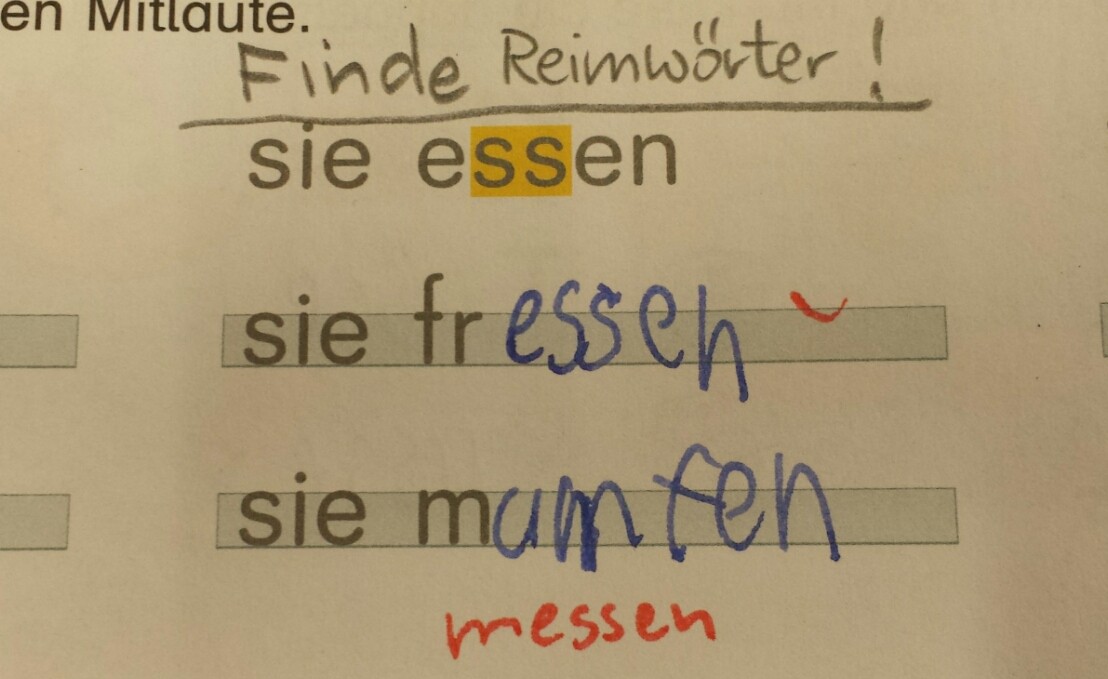 en Mitlaute.
Finde Reimwörter!
sie essen
sie fressen
sie mumfen
messen